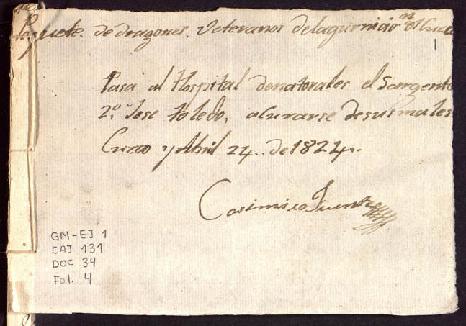 Piquete de dragones Veteranos de la guarnicion del Cuzco
1
Pasa al Hospital de natorales el Sargento
2º José Toledo, a curarse de sus males
Cuzco y Abril 24.. de 1824,,
Casimiro Fuentes
GM-EJ 1
CAJ 131
DOC 34
Fol. 4